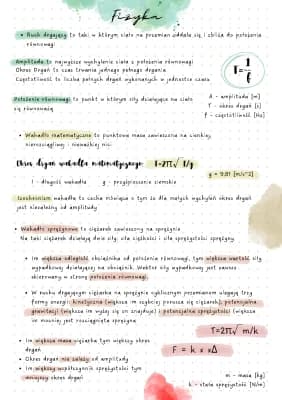 Fizyka
• Ruch drgający to taki w którym ciało na przemian oddala się i zbliża do położenia
równowagi
Amplituda to największe wychylenie ciała z położenia równowagi
Okres Drgań to czas trwania jednego pełnego drgania
Częstotliwość to liczba pełnych drgań wykonanych w jednostce czasu
T=1/f
Położenie równowagi to punkt w którym siły działające na ciało
się równoważą
A - amplituda [m]
T - okres drgań [s]
f - częstotliwość [Hz]
• Wahadło matematyczne to punktowa masa zawieszona na cienkiej,
nierozciągliwej i nieważkiej nici
Okres drgań wahadła matematycznego T=2π√ l/g
g = 9.81 [m/s^2]
l - długość wahadła g - przyśpieszenie ziemskie
Izochronizm wahadła to cecha mówiąca o tym że dla małych wychyleń okres drgań
jest niezależny od amplitudy
• Wahadło sprężynowe to ciężarek zawieszony na sprężynie
Na taki ciężarek działają dwie siły: siła ciężkości i siła sprężystości sprężyny
• Im większa odległość obciążnika od położenia równowagi, tym większa wartość siły
wypadkowej działającej na obciążnik. Wektor siły wypadkowej jest zawsze
skierowany w stronę położenia równowagi.
• W ruchu drgającym ciężarka na sprężynie cyklicznym przemianom ulegają trzy
formy energii: kinetyczna (większa im szybciej porusza się ciężarek), potencjalna
grawitacji (większa im wyżej się on znajduje) i potencjalna sprężystości (większa
im mocniej jest rozciągnięta sprężyna)
T=2π√ m/k
• Im większa masa ciężarka tym większy okres
drgań
• Okres drgań nie zależy od amplitudy
• Im większy współczynnik sprężystości tym
mniejszy okres drgań
F = k × xΔ
m - masa [kg]
k - stała sprężystości [N/m]